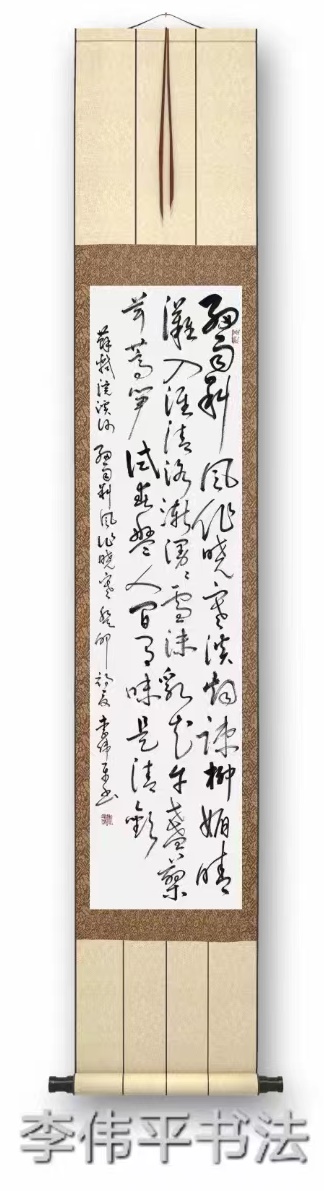 细雨斜风作晓寒淡烟疏柳媚晴
滩入淮清洛渐漫漫雪沫乳花午盏蓼
茸蒿笋试春盘人间有味是清欢
苏轼浣溪沙 细雨斜风作晓寒 癸卯初夏 李伟平书
李伟平书法